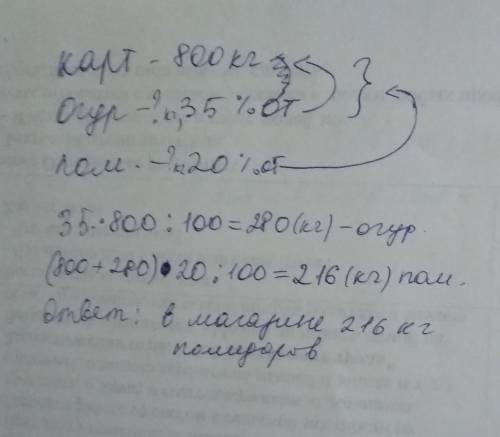 карт - 800 кг
огур - ? кг, 35 % от
пом. - ? кг 20 % от
35 · 800 : 100 = 280 (кг) - огур.
(800 + 280) · 20 : 100 = 216 (кг) пом.
Ответ: в магазине 216 кг
помидоров